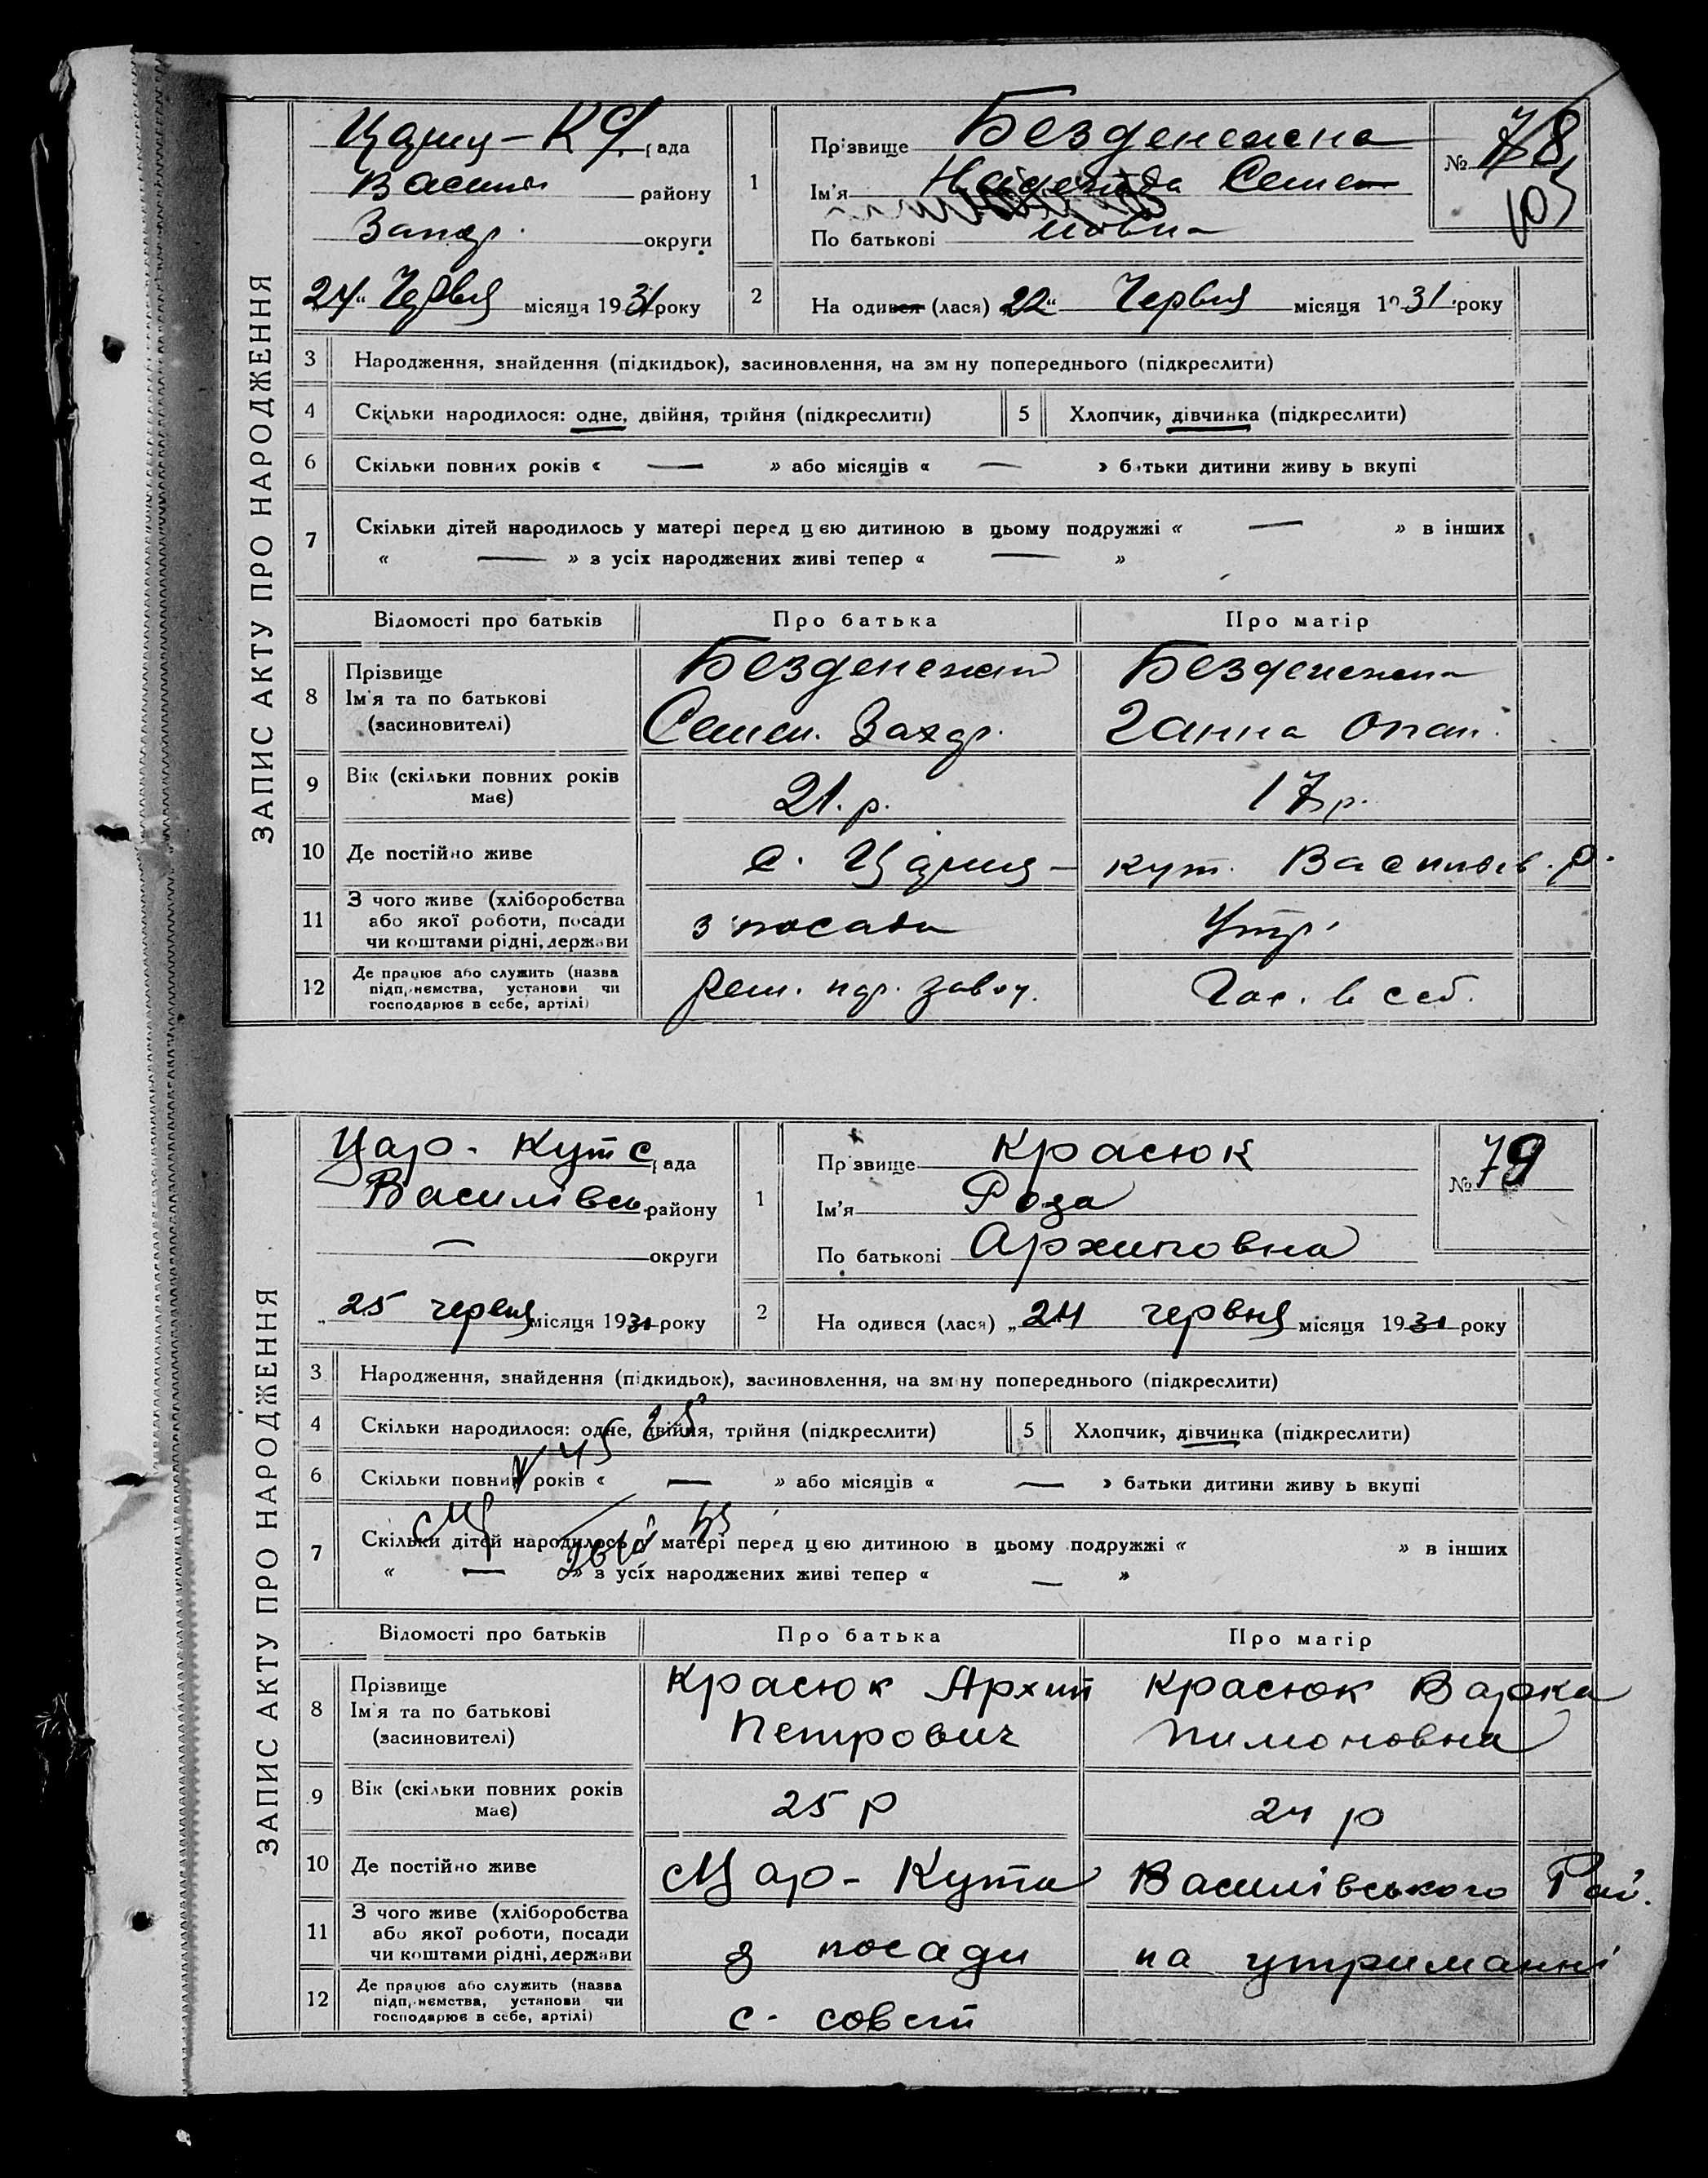 ЗАПИС АКТУ ПРО НАРОДЖЕННЯ
Цариц-К С. рада
Васил району
Запор. округи
24 Червня місяця 1931 року
1
Прізвище Безденежна
Ім'я Надежда Семе
По батькові новна
№ 78
105
2 На одився (лася) 22 Червня місяця 1931 року
3 Народження, знайдення (підкидьок), засиновлення, на зм ну попереднього (підкреслити)
4 Скільки народилося: одне, двійня, трійня (підкреслити) 5 Хлопчик, дівчинка (підкреслити)
6 Скільки повних років « — » або місяців « — » батьки дитини живу ь вкупі
7 Скільки дітей народилось у матері перед цею дитиною в цьому подружжі « — » в інших
« — » з усіх народжених живі тепер « — »
Відомості про батьків Про батька Про матір
8 Прізвище
Ім'я та по батькові
(засиновителі)
Безденежний
Семен. Захар.
Безденежна
Ганна Опан.
9 Вік (скільки повних років має) 21. р. 17 р.
10 Де постійно живе с. Цариц- кут. Васильев. р.
11 З чого живе (хліборобства
або якої роботи, посади
чи коштами рідні, держави
з посади Утр.
12 Де працює або служить (назва
підп, иємства, установи чи
господарює в себе, артілі)
Рем. завод. Гос. в себ.
ЗАПИС АКТУ ПРО НАРОДЖЕННЯ
Цар. Кут с рада
Василівсь. району
— округи
„ 25 червня місяця 1931 року
1
Прізвище Красюк
Ім'я Роза
По батькові Архиповна
№ 79
2 На одився (лася) „ 24 червня місяця 1931 року
3 Народження, знайдення (підкидьок), засиновлення, на зм ну попереднього (підкреслити)
4 Скільки народилося: одне, двійня, трійня (підкреслити) 5 Хлопчик, дівчинка (підкреслити)
6 Скільки повних років « — » або місяців « — » батьки дитини живу ь вкупі
7 Скільки дітей народилось у матері перед цею дитиною в цьому подружжі « » в інших
« — » з усіх народжених живі тепер « — »
Відомості про батьків Про батька Про матір
8 Прізвище
Ім'я та по батькові
(засиновителі)
Красюк Архип
Петрович
Красюк Варка
Пимоновна
9 Вік (скільки повних років має) 25 р 24 р
10 Де постійно живе с Цар-Кути Василівського Рай.
11 З чого живе (хліборобства
або якої роботи, посади
чи коштами рідні, держави
з посади на утриманні
12 Де працює або служить (назва
підп, иємства, установи чи
господарює в себе, артілі)
с. совет